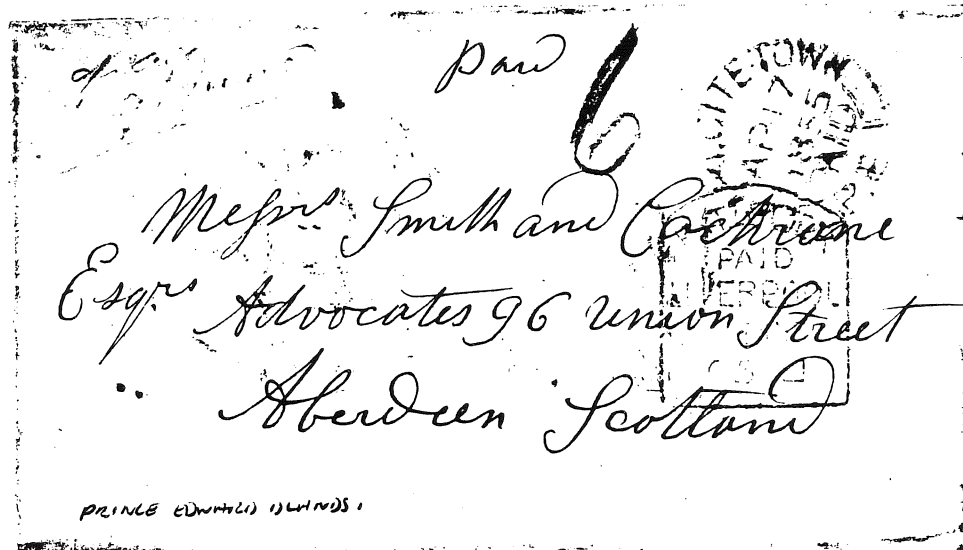 Paid 6
Messrs Smith and Cochrane
Esqrs Advocates 96 Union Street
Aberdeen Scotland
PAID
LIVERPOOL
PRINCE EDWARD ISLANDS.